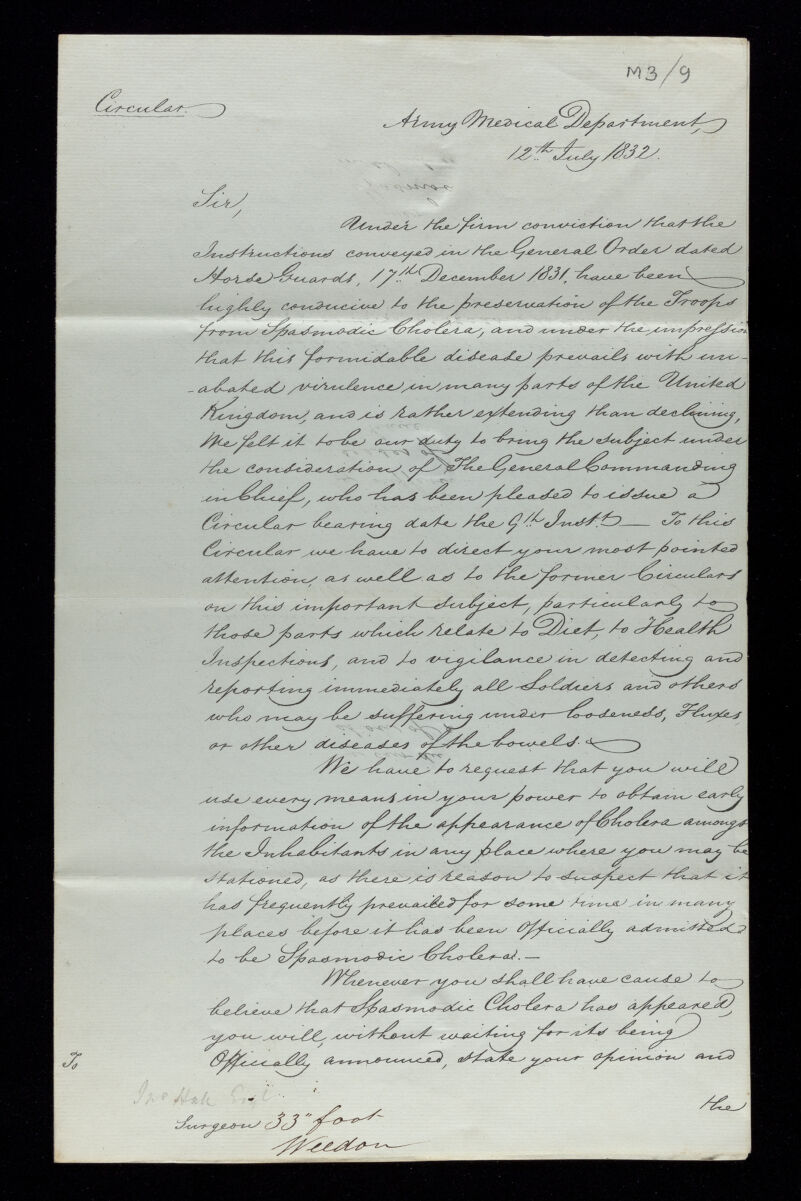 M3/9
Circular.
Army Medical Department,
12th July 1832.
Sir,
Under the firm conviction that the
Instructions conveyed in the General Order dated
Horse Guards, 17th December 1831, have been
highly conducive to the preservation of the Troops
from Spasmodic Cholera, and under the impression
that this formidable disease prevails with un-
-abated virulence, in many parts of the United
Kingdom, and is rather extending than declining,
We felt it to be our duty to bring the subject under
the consideration of The General Commanding
in Chief, who has been pleased to issue a
Circular bearing date the 9th Inst. — To this
Circular we have to direct your most pointed
attention, as well as to the former Circulars
on this important subject, particularly to
those parts which relate to Diet, to Health
Inspections, and to vigilance in detecting and
reporting immediately all Soldiers and others
who may be suffering under looseness, Fluxes,
or other diseases of the bowels.
We have to request that you will
use every means in your power to obtain early
information of the appearance of Cholera amongst
the Inhabitants in any place where you may be
stationed, as there is reason to suspect that it
has frequently prevailed for some time in many
places before it has been Officially admitted
to be Spasmodic Cholera. —
Whenever you shall have cause to
believe that Spasmodic Cholera has appeared,
you will, without waiting for its being
Officially announced, state your opinion and
the
To
Esq
Surgeon 33" foot
Weedon